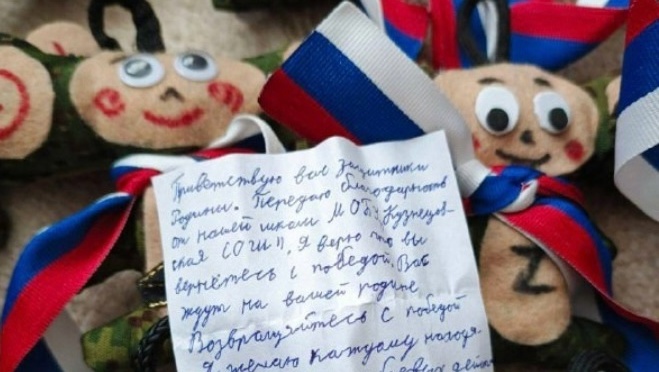 Приветствую вас защитники
Родины. Передаю благодарность
от нашей школы МОБУ Кузнецов-
ская СОШ". Я верю что вы
вернётесь с победой. Вас
ждут на вашей родине
Возвращяйтесь с победой
Я желаю каждому находя-
боевых дейст
Z